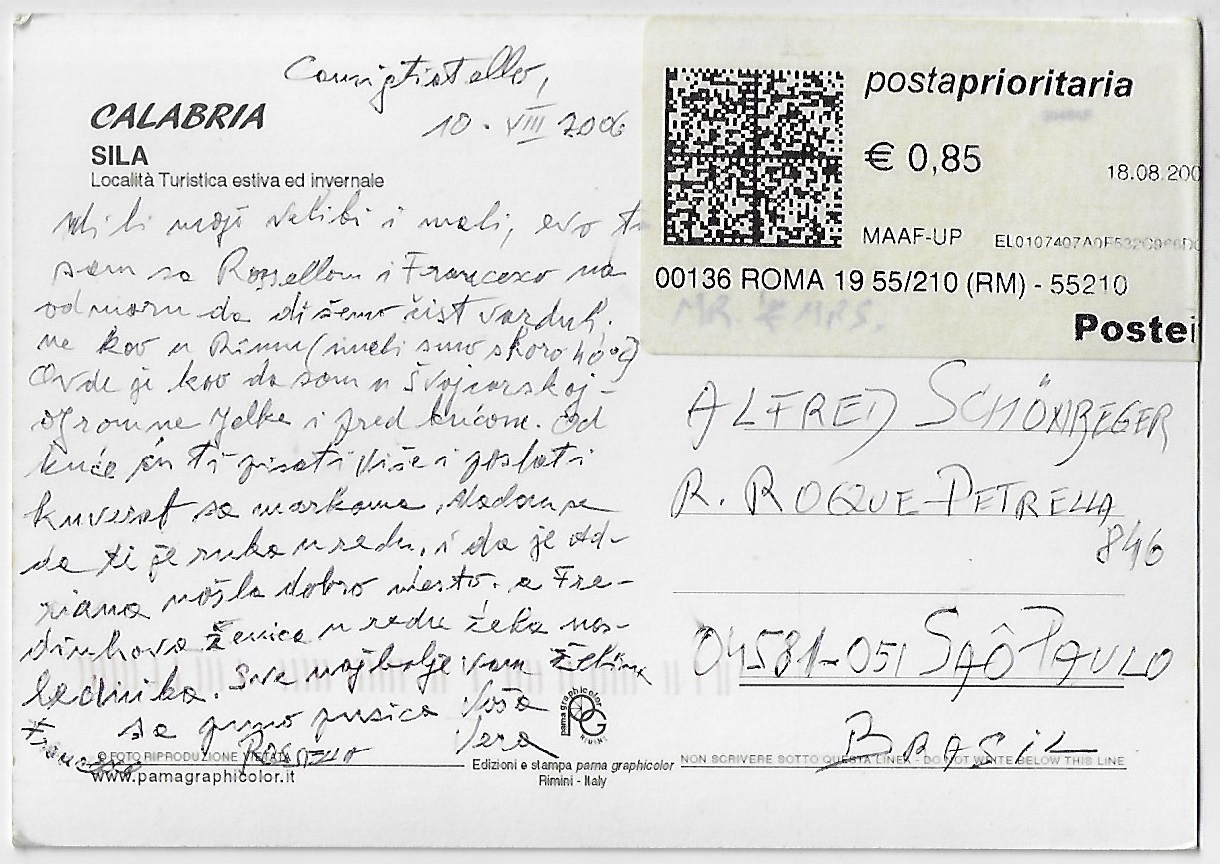 Camigliatello,
10. VIII 2006
CALABRIA
SILA
Località Turistica estiva ed invernale
moji veliki i mali, evo
sam sa Rossellom i Francesco na
odmoru da dišemo čist vazduh,
ne kao u Rimu (imali smo skoro 40°C)
Ovde je kao da sam u Švajcarskoj -
ogromne jelke i pred kućom. Od
kuće ću ti pisati više i poslati
kuverat sa markama. Nadam se
da ti je ruka u redu, i da je Ad-
riana našla dobro mesto. a Fre-
dinkova ženica u redu čeka nas-
lednika. Sve najbolje vam želim
sa puno pusica Vaša
Vera
Francesco
posta prioritaria
€ 0,85
18.08.200
MAAF-UP EL0107407A0F532C966D
00136 ROMA 19 55/210 (RM) - 55210
MR. & MRS.
Postei
ALFRED SCHÖNBEGER
R. ROQUE-PETRELLA
846
04581-051 SAÔ PAULO
BRASIL
© FOTO RIPRODUZIONE VIETATA
www.pamagraphicolor.it
pama graphicolor
RIMINI
Edizioni e stampa pama graphicolor
Rimini - Italy
NON SCRIVERE SOTTO QUESTA LINEA - DO NOT WRITE BELOW THIS LINE